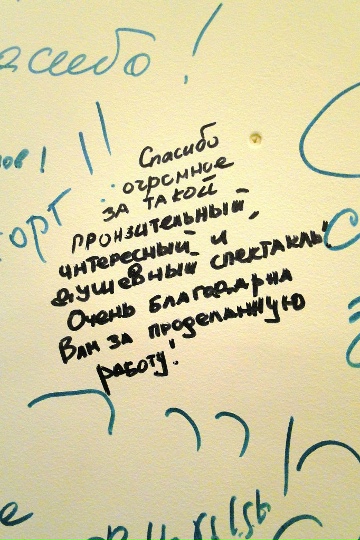 асибо!
Спасибо
огромное
за такой
пронзительный,
интересный и
душевный спектакль!
Очень благодарна
Вам за проделанную
работу!